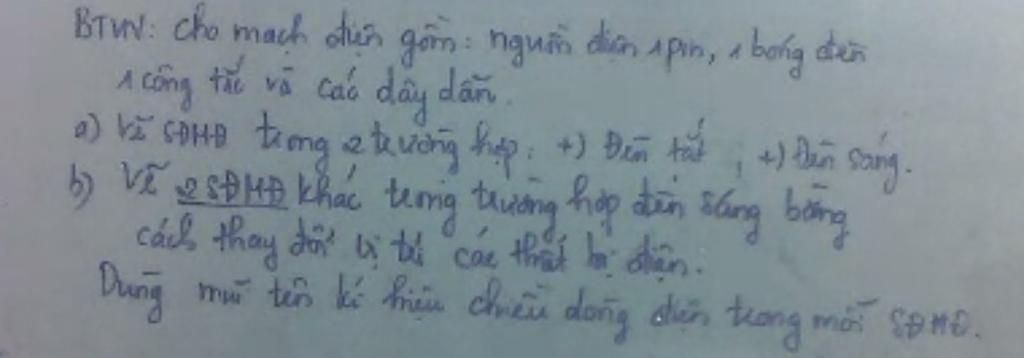 BTVN: Cho mạch điện gồm: nguồn điện 1 pin, 1 bóng đèn
1 công tắc và các dây dẫn.
a) Vẽ SĐMĐ trong 2 trường hợp: +) Đèn tắt ; +) Đèn sáng.
b) Vẽ 2 SĐMĐ khác trong trường hợp đèn sáng bằng
cách thay đổi vị trí các thiết bị điện.
Dùng mũi tên kí hiệu chiều dòng điện trong mỗi SĐMĐ.